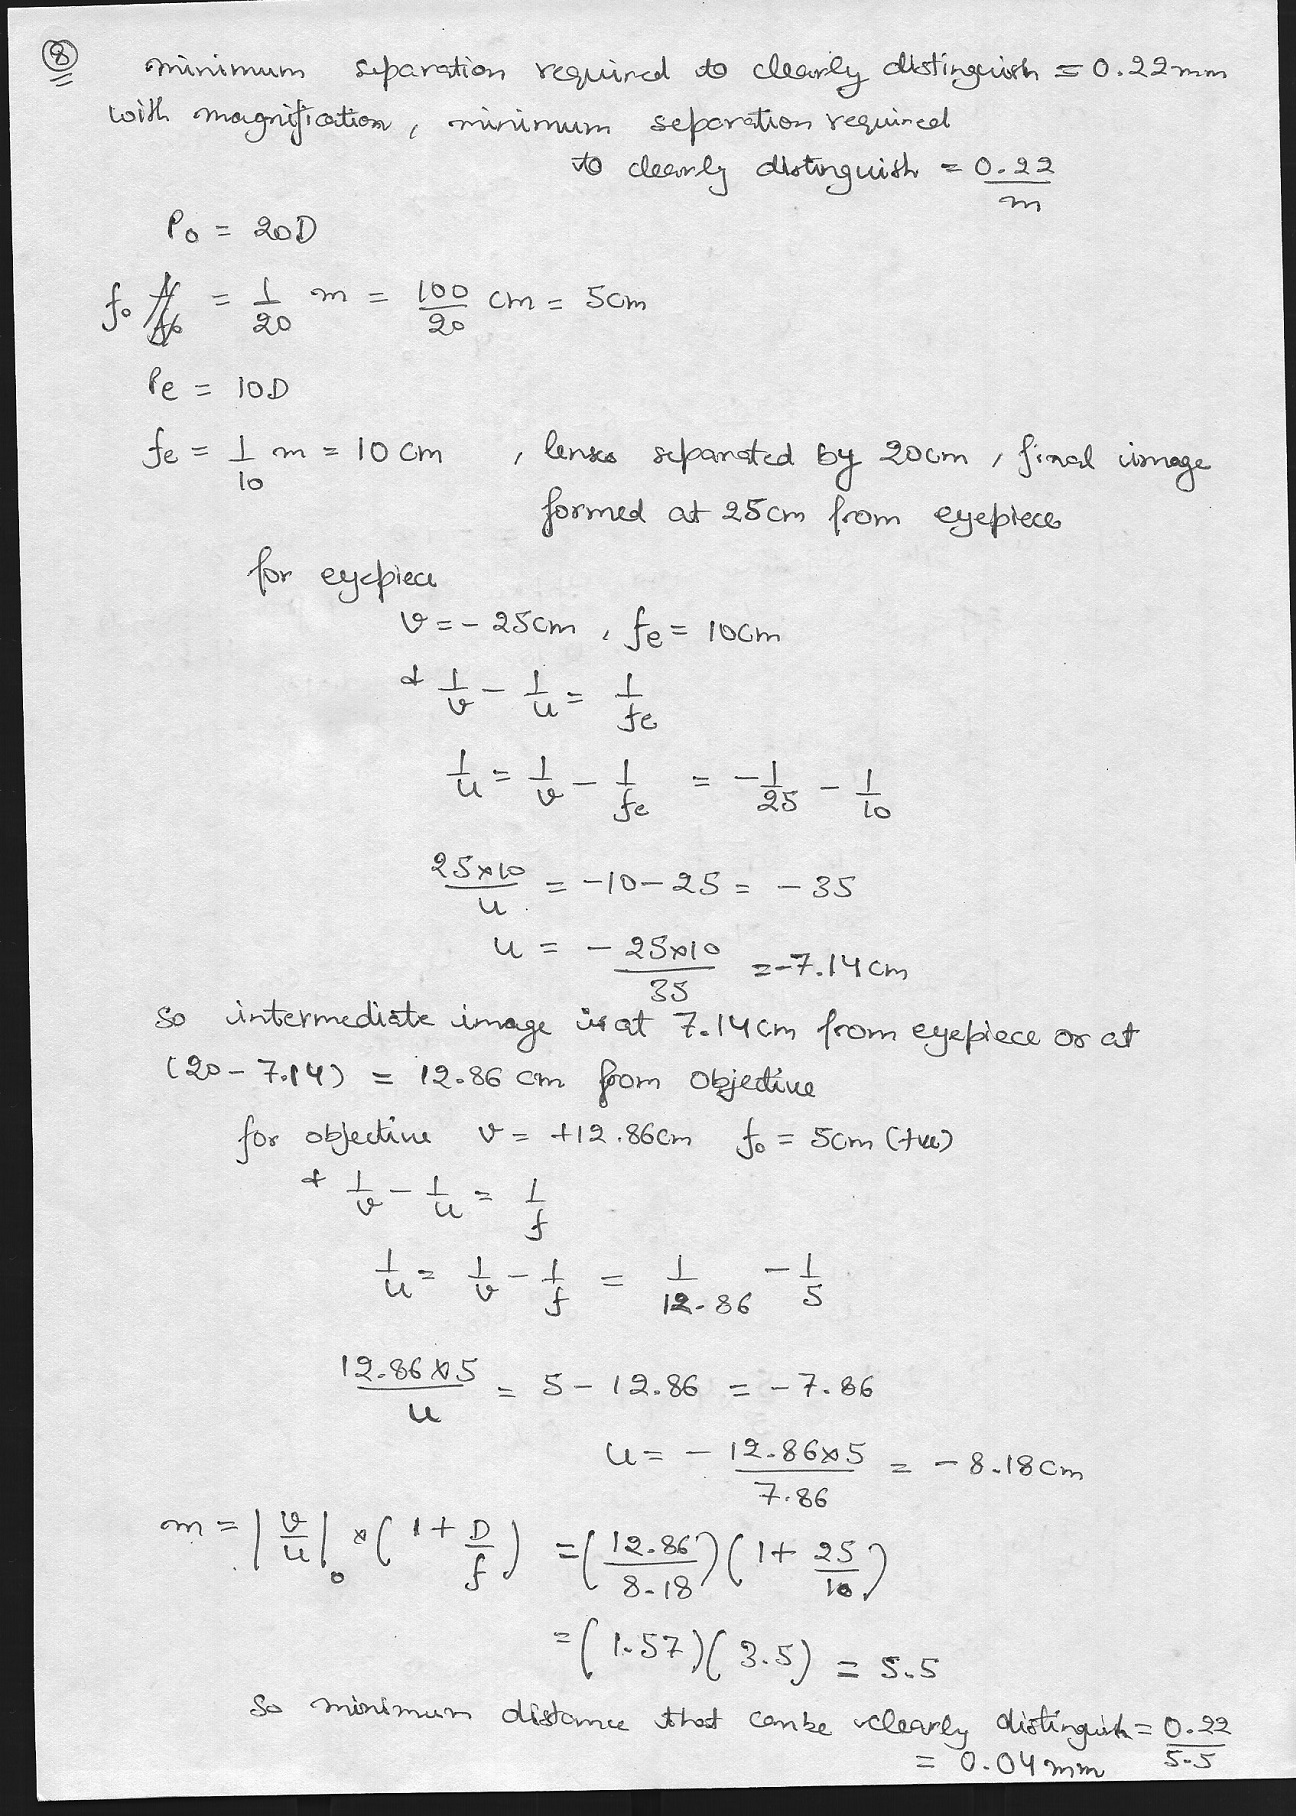 8
minimum separation required to clearly distinguish = 0.22mm
with magnification, minimum separation required
to clearly distinguish = 0.22/m
Po = 20D
fo = 1/20 m = 100/20 cm = 5cm
Pe = 10D
fe = 1/10 m = 10 cm , lenses separated by 20cm, final image
formed at 25cm from eyepiece
for eyepiece
v = -25cm , fe = 10cm
& 1/v - 1/u = 1/fe
1/u = 1/v - 1/fe = -1/25 - 1/10
25×10/u = -10-25 = -35
u = - 25×10/35 = -7.14cm
so intermediate image is at 7.14cm from eyepiece or at
(20-7.14) = 12.86 cm from objective
for objective v = +12.86cm fo = 5cm (+ve)
& 1/v - 1/u = 1/f
1/u = 1/v - 1/f = 1/12.86 - 1/5
12.86×5/u = 5 - 12.86 = -7.86
u = - 12.86×5/7.86 = -8.18cm
m = |v/u|o × (1+ D/f) = (12.86/8.18)(1+ 25/10)
= (1.57)(3.5) = 5.5
So minimum distance that can be clearly distinguish = 0.22/5.5
= 0.04mm